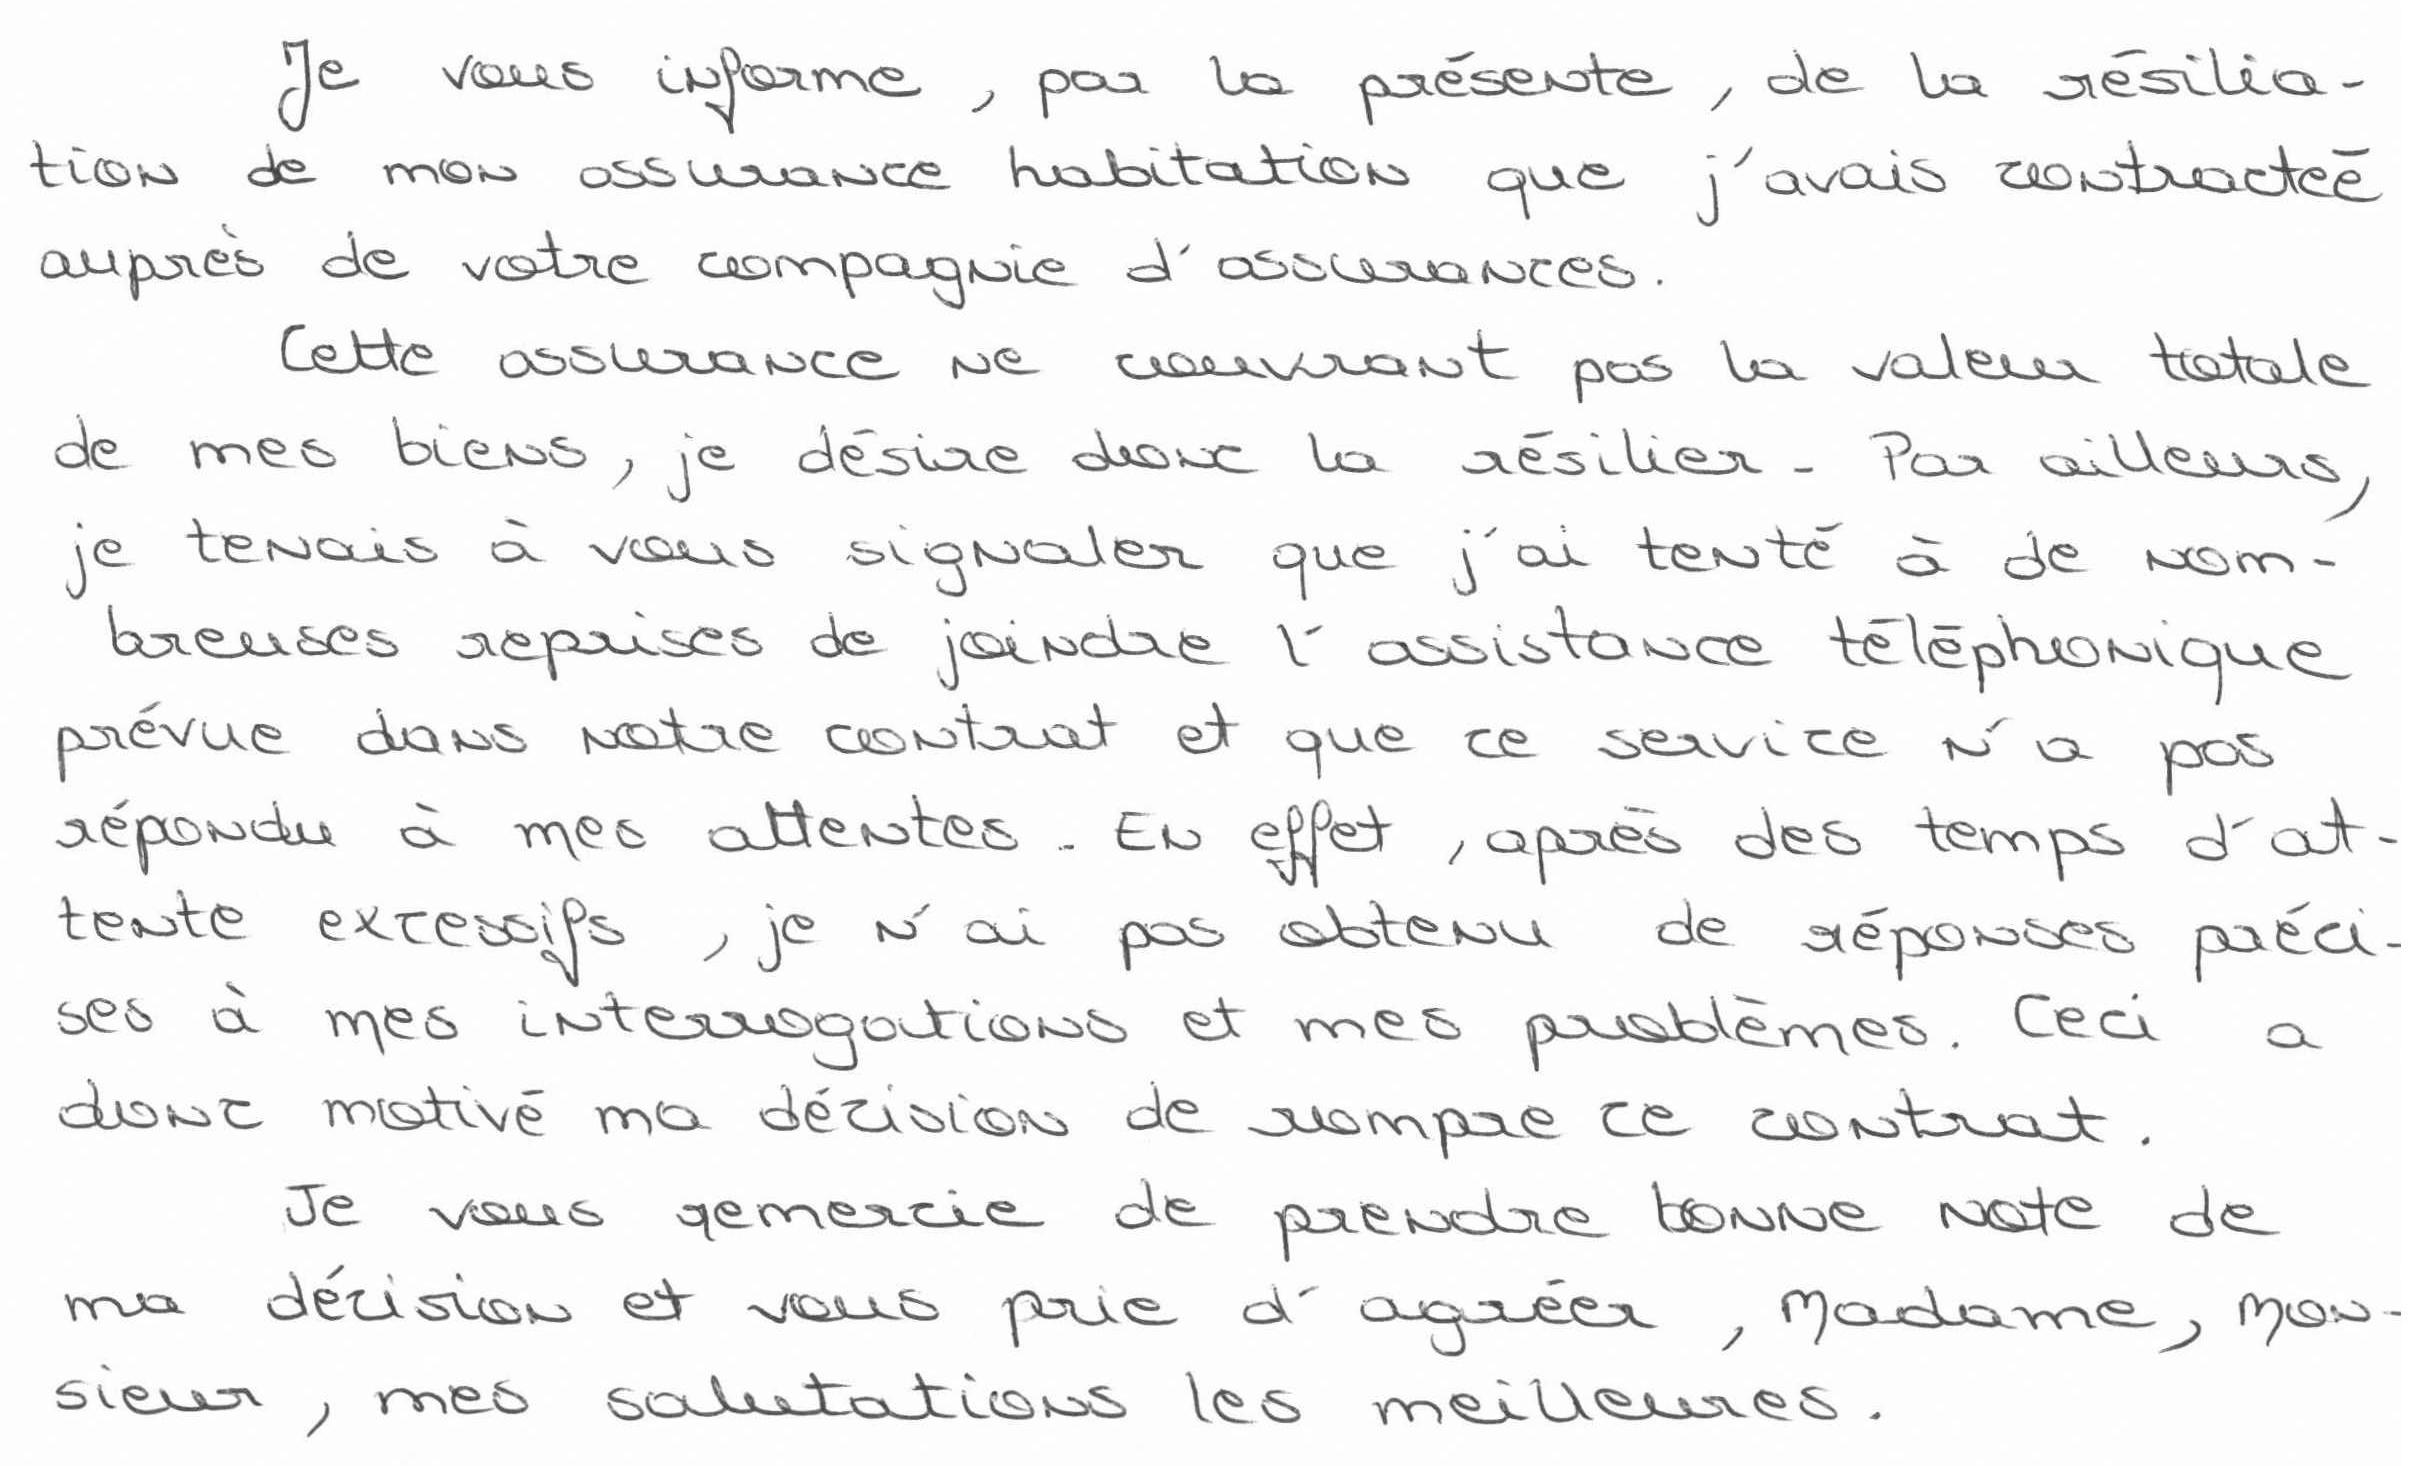 Je vous informe, par la présente, de la résilia-
tion de mon assurance habitation que j'avais contracteé
auprès de votre compagnie d'assurances.
Cette assurance ne couvrant pas la valeur totale
de mes biens, je désire donc la résilier. Par ailleurs,
je tenais à vous signaler que j'ai tenté à de nom-
breuses reprises de joindre l'assistance téléphonique
prévue dans notre contrat et que ce service n'a pas
répondu à mes attentes. En effet, après des temps d'at-
tente excessifs, je n'ai pas obtenu de réponses préci-
ses à mes interrogations et mes problèmes. Ceci a
donc motivé ma décision de rompre ce contrat.
Je vous remercie de prendre bonne note de
ma décision et vous prie d'agréer, Madame, Mon-
sieur, mes salutations les meilleures.